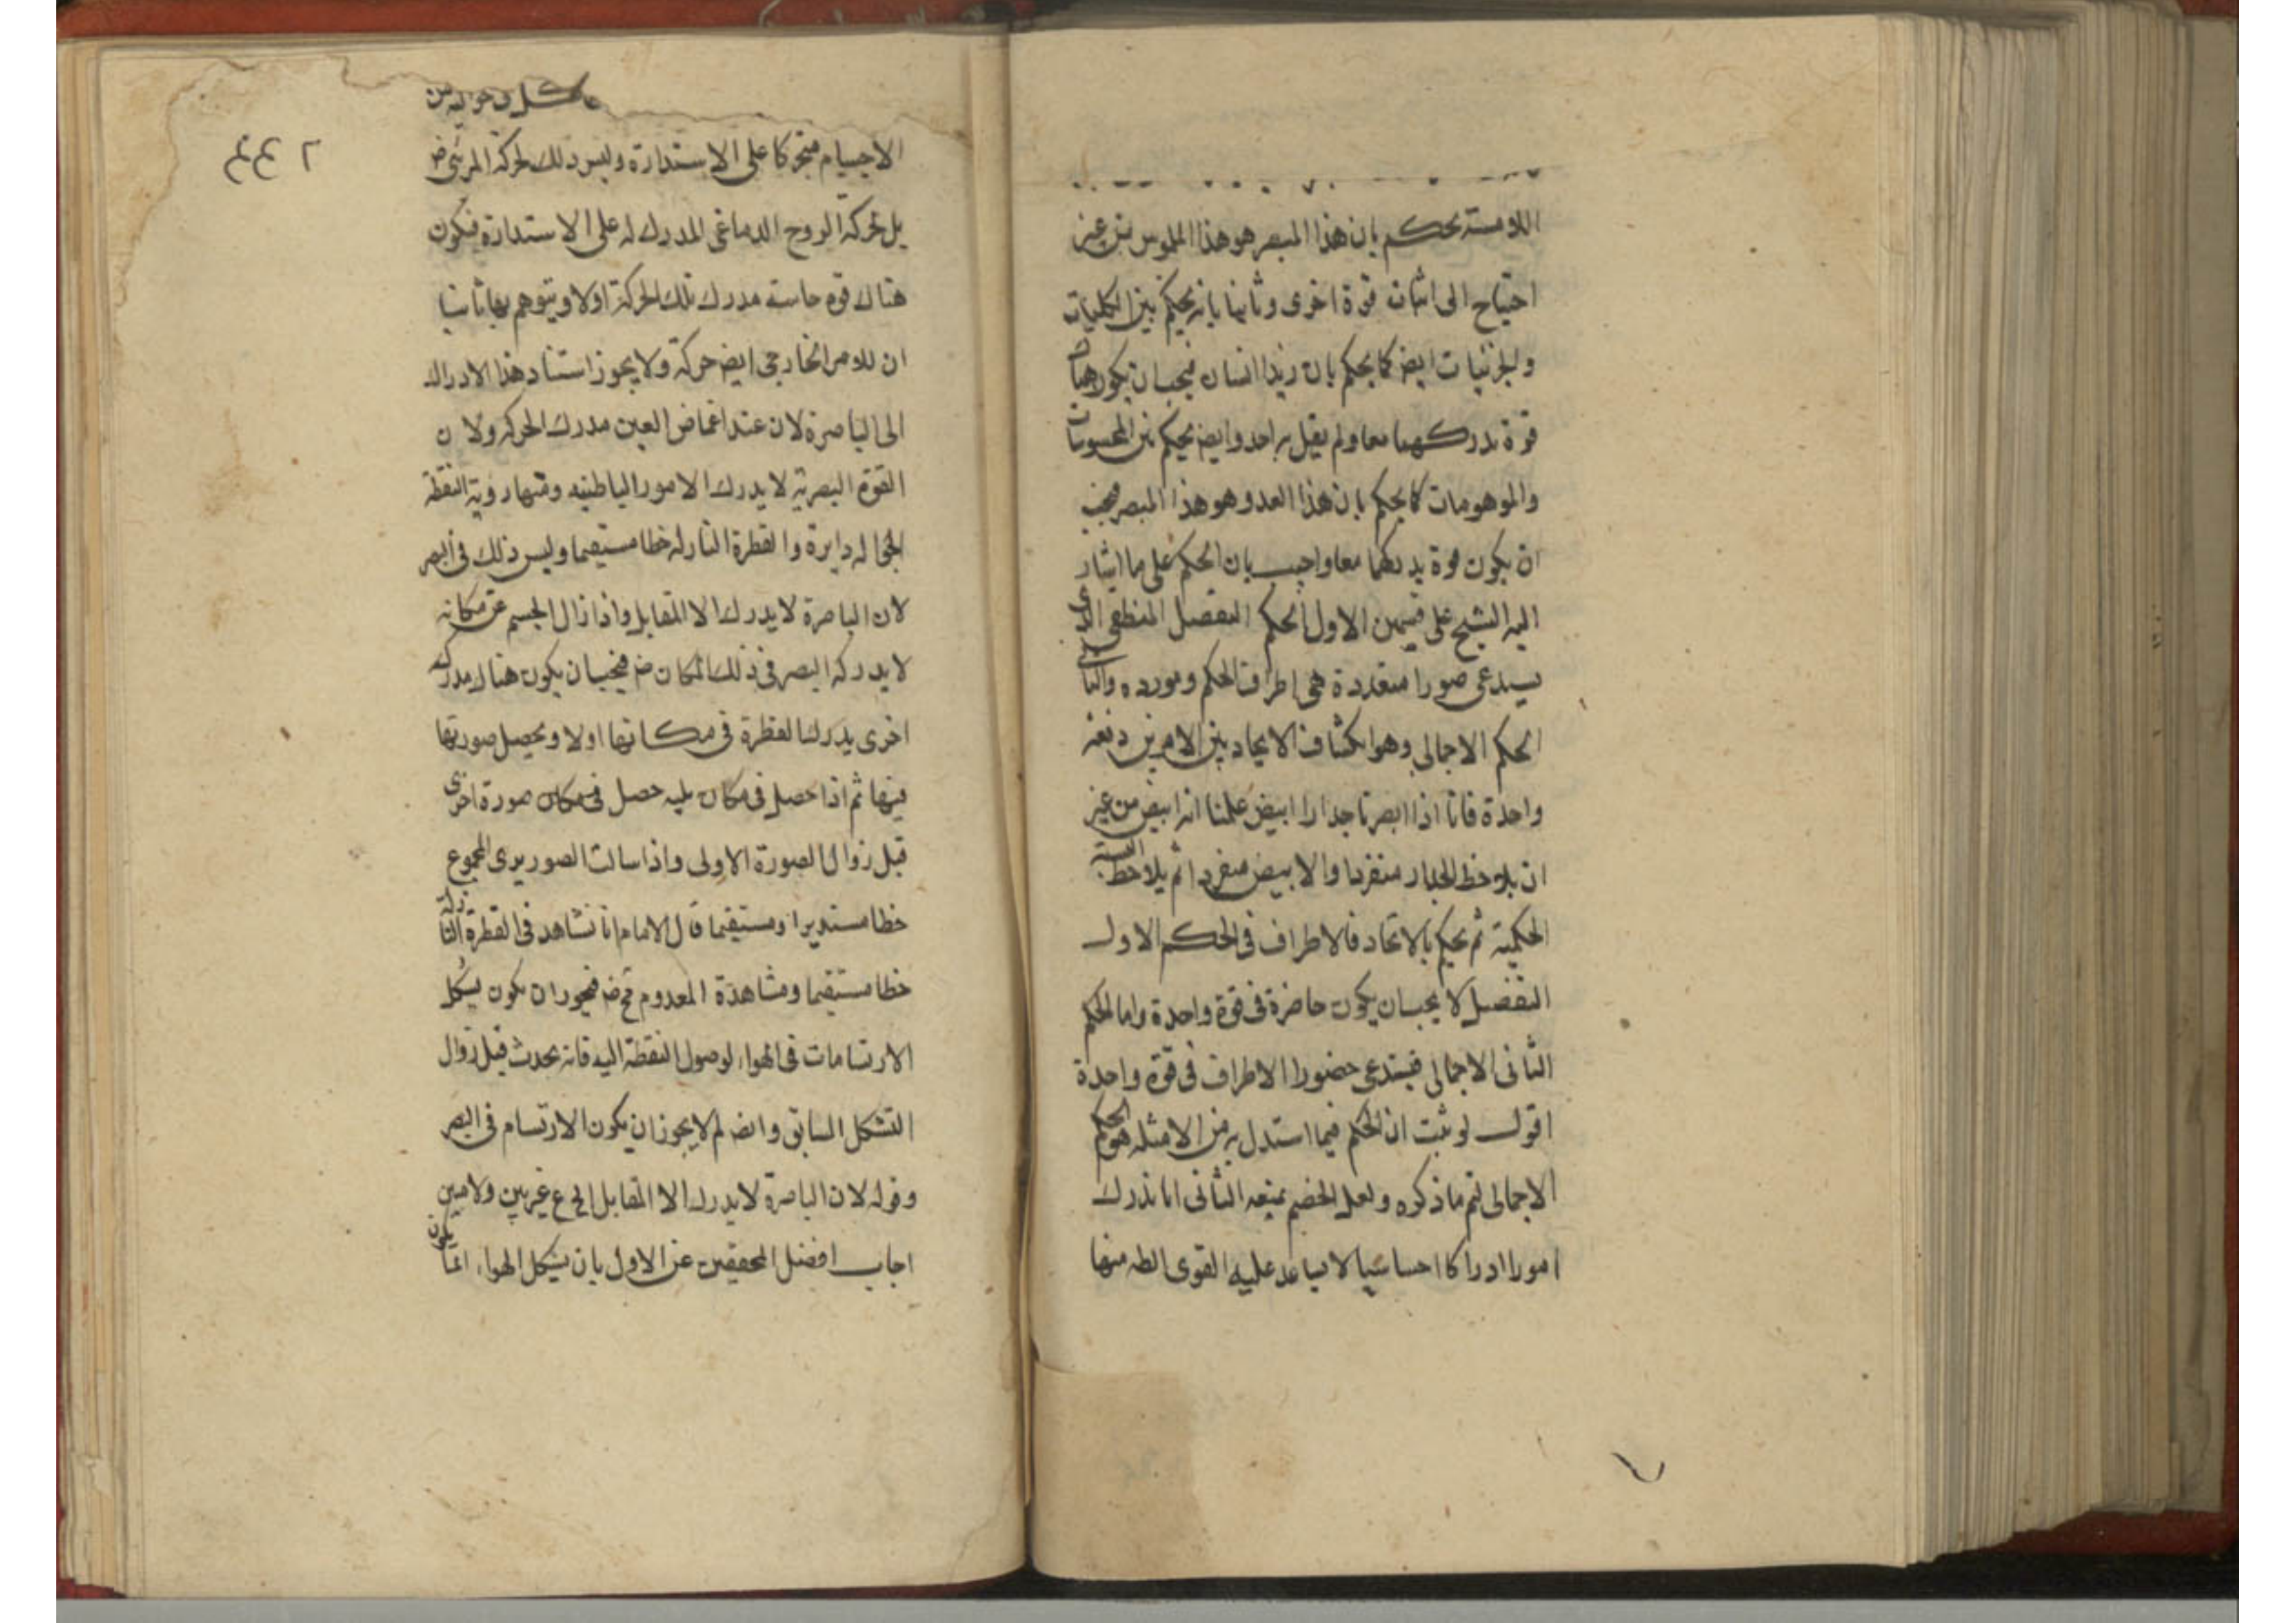 اللامسة تحكم بان هذا المبصر هو هذا الملموس من غير
احتياج الى اثبات قوة اخرى وثانيا بانه يحكم بين الكليات
والجزئيات ايض كما يحكم بان زيدا انسان فيجب ان يكون هناك
قوة تدركهما معا ولم يقل به احد وايض يحكم بين المحسوسات
والموهومات كما يحكم بان هذا العدو هو هذا المبصر فيجب
ان يكون قوة يدركهما معا واجيب بان الحكم على ما اشار
اليه الشيخ على قسمين الاول الحكم التفصيل المنطقي الذى
يستدعى صورا متعددة هى اطراف الحكم ومورده والثانى
الحكم الاجمالى وهو انكشاف الاتحاد بين الامرين دفعة
واحدة فانا اذا ابصرنا جدارا ابيض علمنا انه ابيض من غير
ان يلاحظ الجدار منفردا والابيض منفردا ثم يلاحظ النسبة
الحكمية ثم يحكم بالاتحاد فالاطراف فى الحكم الاول
التفصيل لا يجب ان يكون حاضرة فى قوة واحدة واما الحكم
الثانى الاجمالى فيستدعى حضور الاطراف فى قوة واحدة
اقول لو ثبت ان الحكم فيما استدل به من الامثله هو الحكم
الاجمالى لتم ما ذكره ولعل الخصم يمنعه الثانى انا ندرك
امورا ادراكا احساسيا لا يساعد عليه القوى الظه منها
الاجسام متحركا على الاستدارة وليس ذلك لحركة المرئى ض
بل لحركة الروح الدماغى المدرك له على الاستدارة فيكون
هناك قوة حاسة مدرك تلك الحركة اولا ويتوهم بها ثانيا
ان للامر الخارجى ايض حركة ولا يجوز استناد هذا الادراك
الى الباصرة لان عند اغماض العين مدرك الحركه ولان
القوة البصرية لا يدرك الامور الباطنيه ومنها روية النقطة
الجواله دايرة والقطرة النازله خطا مستقيما وليس ذلك فى البصر
لان الباصرة لا يدرك الا المقابل واذا زال الجسم عن مكانه
لا يدركه البصر فى ذلك المكان ض فيجب ان يكون هناك مدركه
اخرى يدرك القطرة فى مكانها اولا ويحصل صورتها
فيها ثم اذا حصل فى مكان يليه حصل فى مكان صورة اخرى
قبل زوال الصورة الاولى واذا سالت الصور يرى المجموع
خطا مستديرا ومستقيما قال الامام انا نشاهد فى القطرة النازلة
خطا مستقيما ومشاهدة المعدوم مح ض فيجوز ان يكون يشكل
الارتسامات فى الهواء لوصول النقطة اليه فانه يحدث قبل زوال
التشكل السابق وايض لم لا يجوز ان يكون الارتسام فى البصر
وقوله لان الباصرة لا يدرك الا المقابل الخ ع غير بين ولا مبين
اجاب افضل المحققين عن الاول بان تشكل الهواء انما يكون